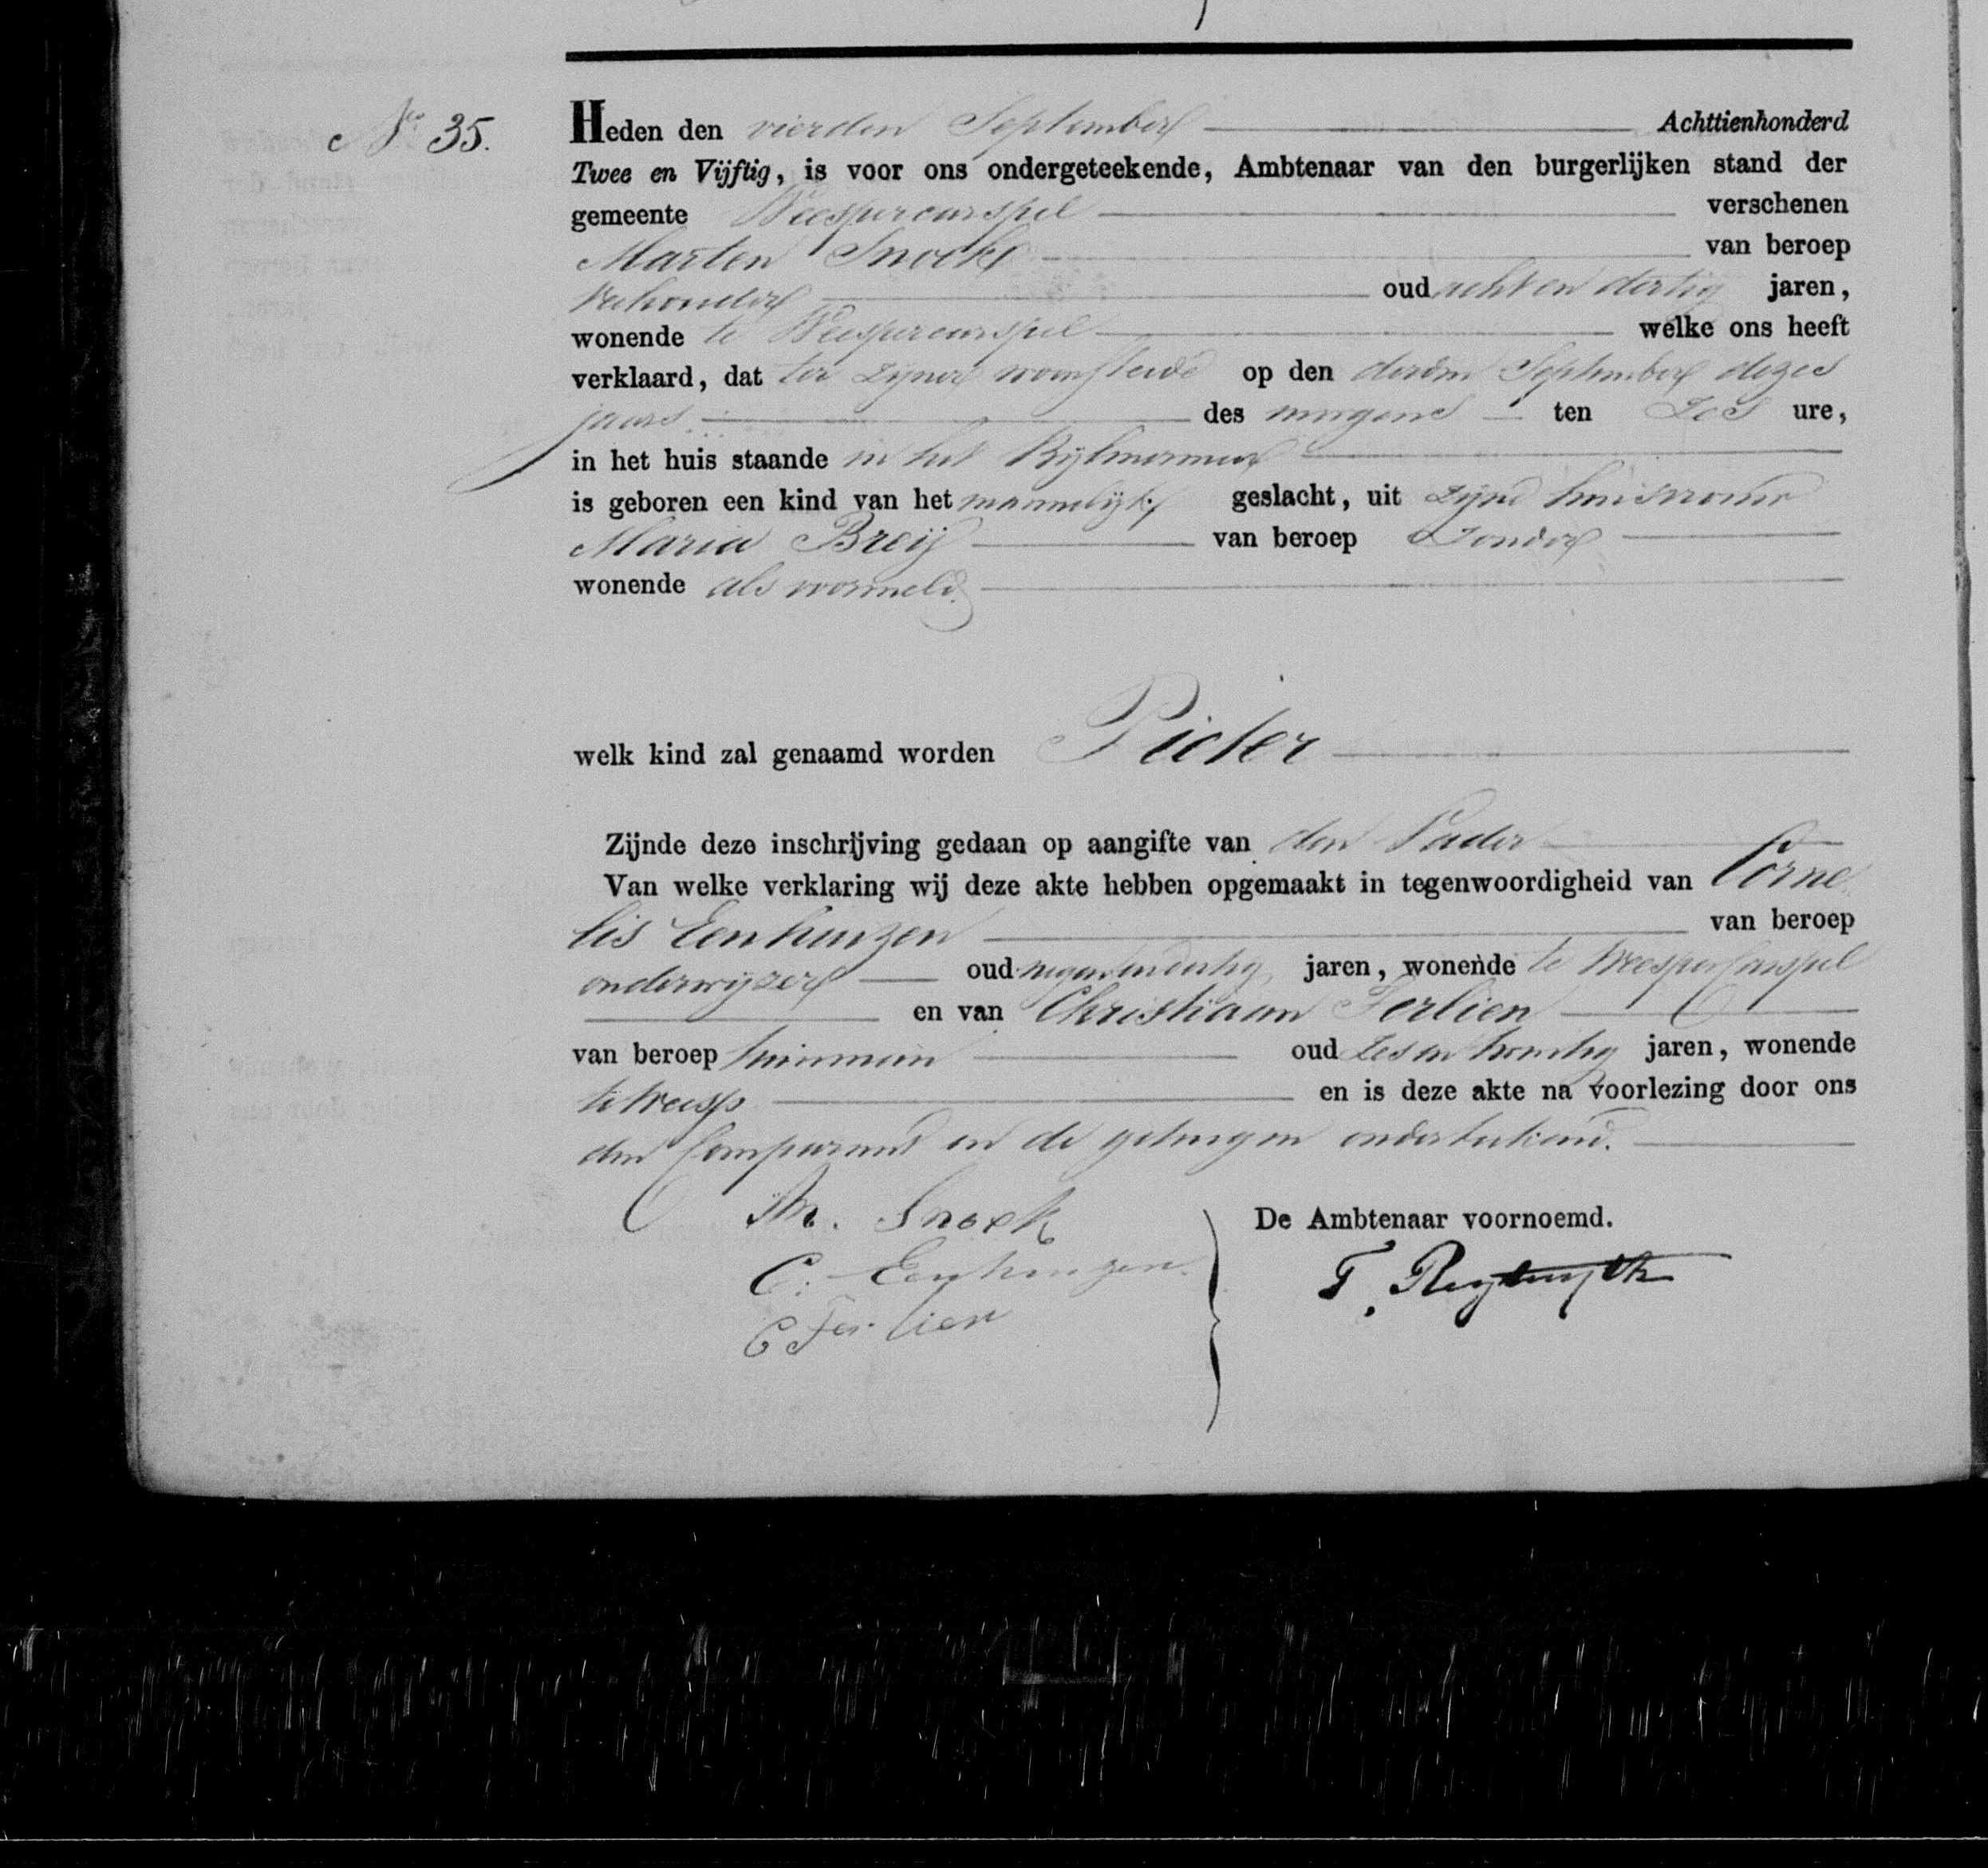 No 35.
Heden den vierden September Achttienhonderd
Twee en Vijftig, is voor ons ondergeteekende, Ambtenaar van den burgerlijken stand der
gemeente Weespercarspel verschenen
Marten Snoek van beroep
Veehouder oud acht en dertig jaren,
wonende te Weespercarspel welke ons heeft
verklaard, dat ter zijner woonstede op den derden September dezes
jaars des morgens ten Zes ure,
in het huis staande in het Bijlmermeer
is geboren een kind van het mannelijk geslacht, uit zijne huisvrouw
Maria Breij van beroep Zonder
wonende als voormeld.
welk kind zal genaamd worden Pieter
Zijnde deze inschrijving gedaan op aangifte van den Vader
Van welke verklaring wij deze akte hebben opgemaakt in tegenwoordigheid van Corne
lis Eenhuizen van beroep
onderwijzer oud negenendertig jaren, wonende te Weespercarspel
en van Christiaan Ferlien
van beroep tuinman oud zes en twintig jaren, wonende
te Weesp en is deze akte na voorlezing door ons
den Comparant en de getuigen onderteekend.
M. Snoek
De Ambtenaar voornoemd.
C. Eenhuizen.
C Ferlien